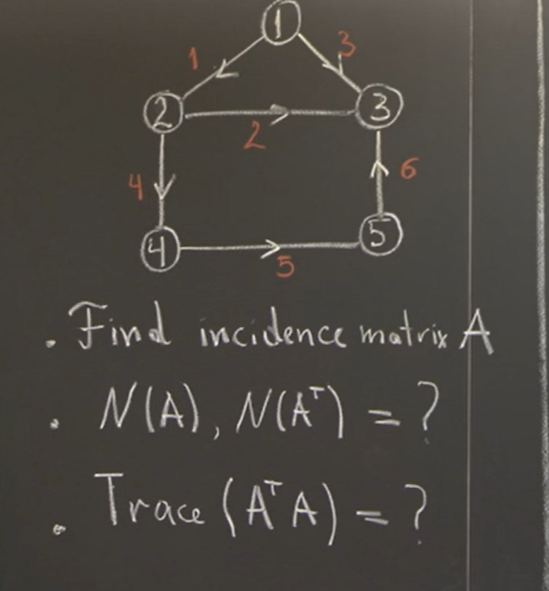 1
1 3
2 3
2
4 6
4 5
5
. Find incidence matrix A
. N(A), N(Aᵀ) = ?
. Trace (AᵀA) = ?